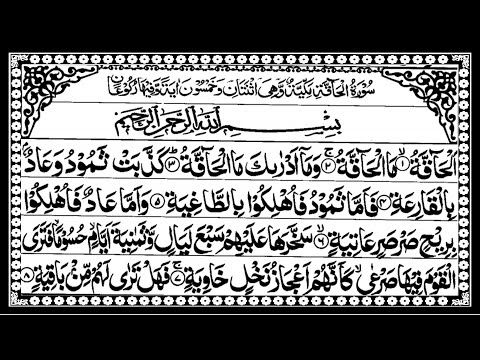 سُوْرَةُ الْحَآقَّةِ مَكِّيَّةٌ وَّهِيَ اثْنَتَانِ وَخَمْسُوْنَ اٰيَةً وَّفِيْهَا رُكُوْعَانِ
بِسْمِ اللّٰهِ الرَّحْمٰنِ الرَّحِيْمِ
اَلْحَآقَّةُ ۙ﴿۱﴾ مَا الْحَآقَّةُ ۚ﴿۲﴾ وَمَاۤ اَدْرٰىكَ مَا الْحَآقَّةُ ؕ﴿۳﴾ كَذَّبَتْ ثَمُوْدُ وَعَادٌۢ
بِالْقَارِعَةِ ﴿۴﴾ فَاَمَّا ثَمُوْدُ فَاُهْلِكُوْا بِالطَّاغِيَةِ ﴿۵﴾ وَاَمَّا عَادٌ فَاُهْلِكُوْا
بِرِيْحٍ صَرْصَرٍ عَاتِيَةٍ ۙ﴿۶﴾ سَخَّرَهَا عَلَيْهِمْ سَبْعَ لَيَالٍ وَّثَمٰنِيَةَ اَيَّامٍ ۙ حُسُوْمًا ۙ فَتَرَى
الْقَوْمَ فِيْهَا صَرْعٰى ۙ كَاَنَّهُمْ اَعْجَازُ نَخْلٍ خَاوِيَةٍ ۚ﴿۷﴾ فَهَلْ تَرٰى لَهُمْ مِّنْۢ بَاقِيَةٍ ﴿۸﴾